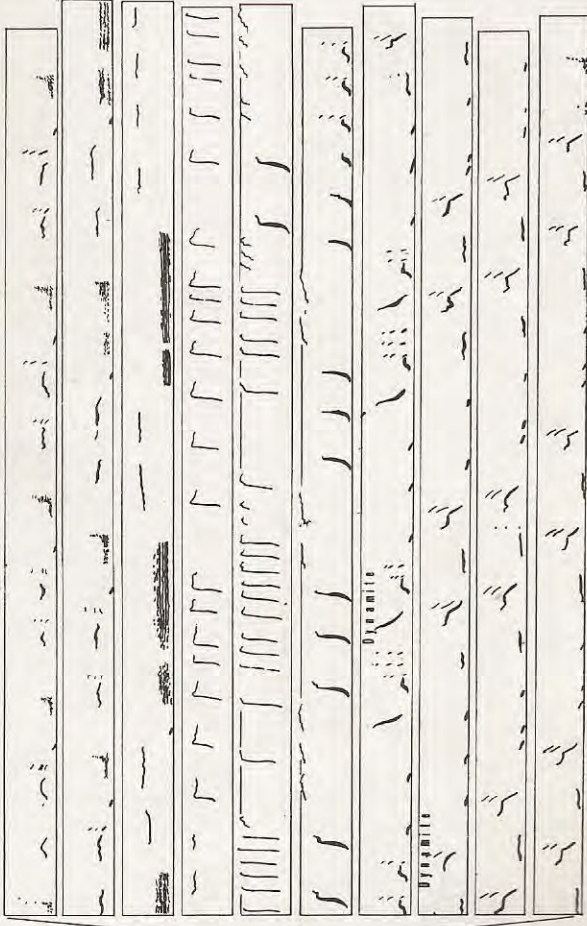 Dynamite
Dynamite